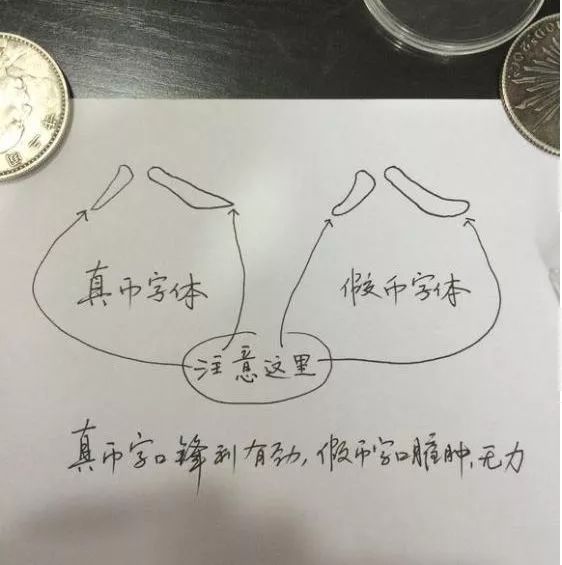 真币字体 假币字体
注意这里
真币字口锋利有劲，假币字口臃肿、无力